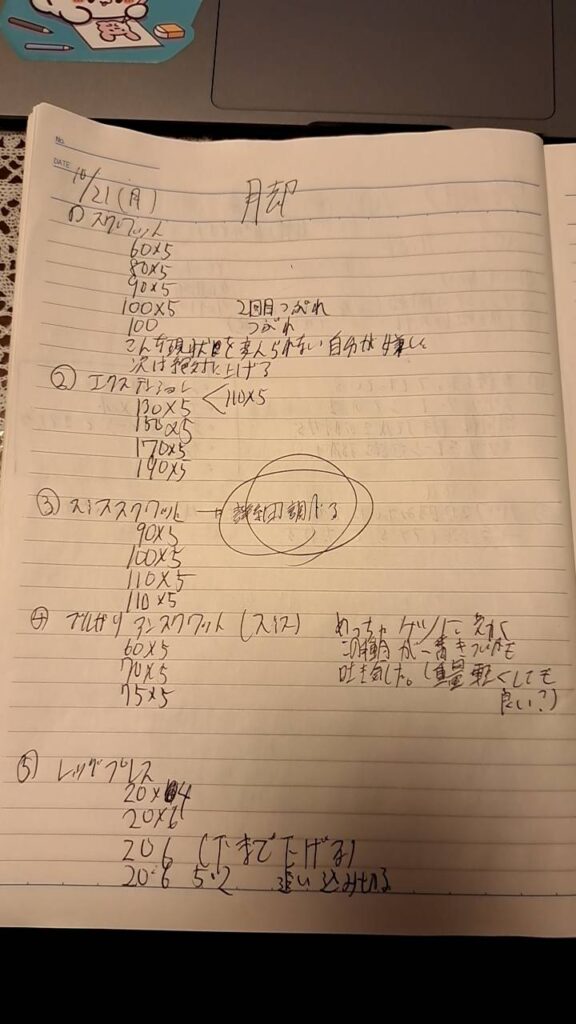 No.
DATE
10/21(月)
月却
① スクワット
60×5
80×5
90×5
100×5 2回目つぶれ
100 つぶれ
こんな現状を変えられない自分が嫌い
次は絶対に上げる
② エクステンション
130×5 <110×5
150×5
170×5
190×5
③ スミススクワット → 調べる
90×5
100×5
110×5
110×5
④ ブルガリアンスクワット (スミス) めっちゃケツに
60×5 この種目が一番きついかも
70×5 吐き気した。(重量軽くしても
75×5 良い?)
⑤ レッグプレス
20×4
20×6
20 6 (下まで下げる)
20·6 5·2 追い込み切る